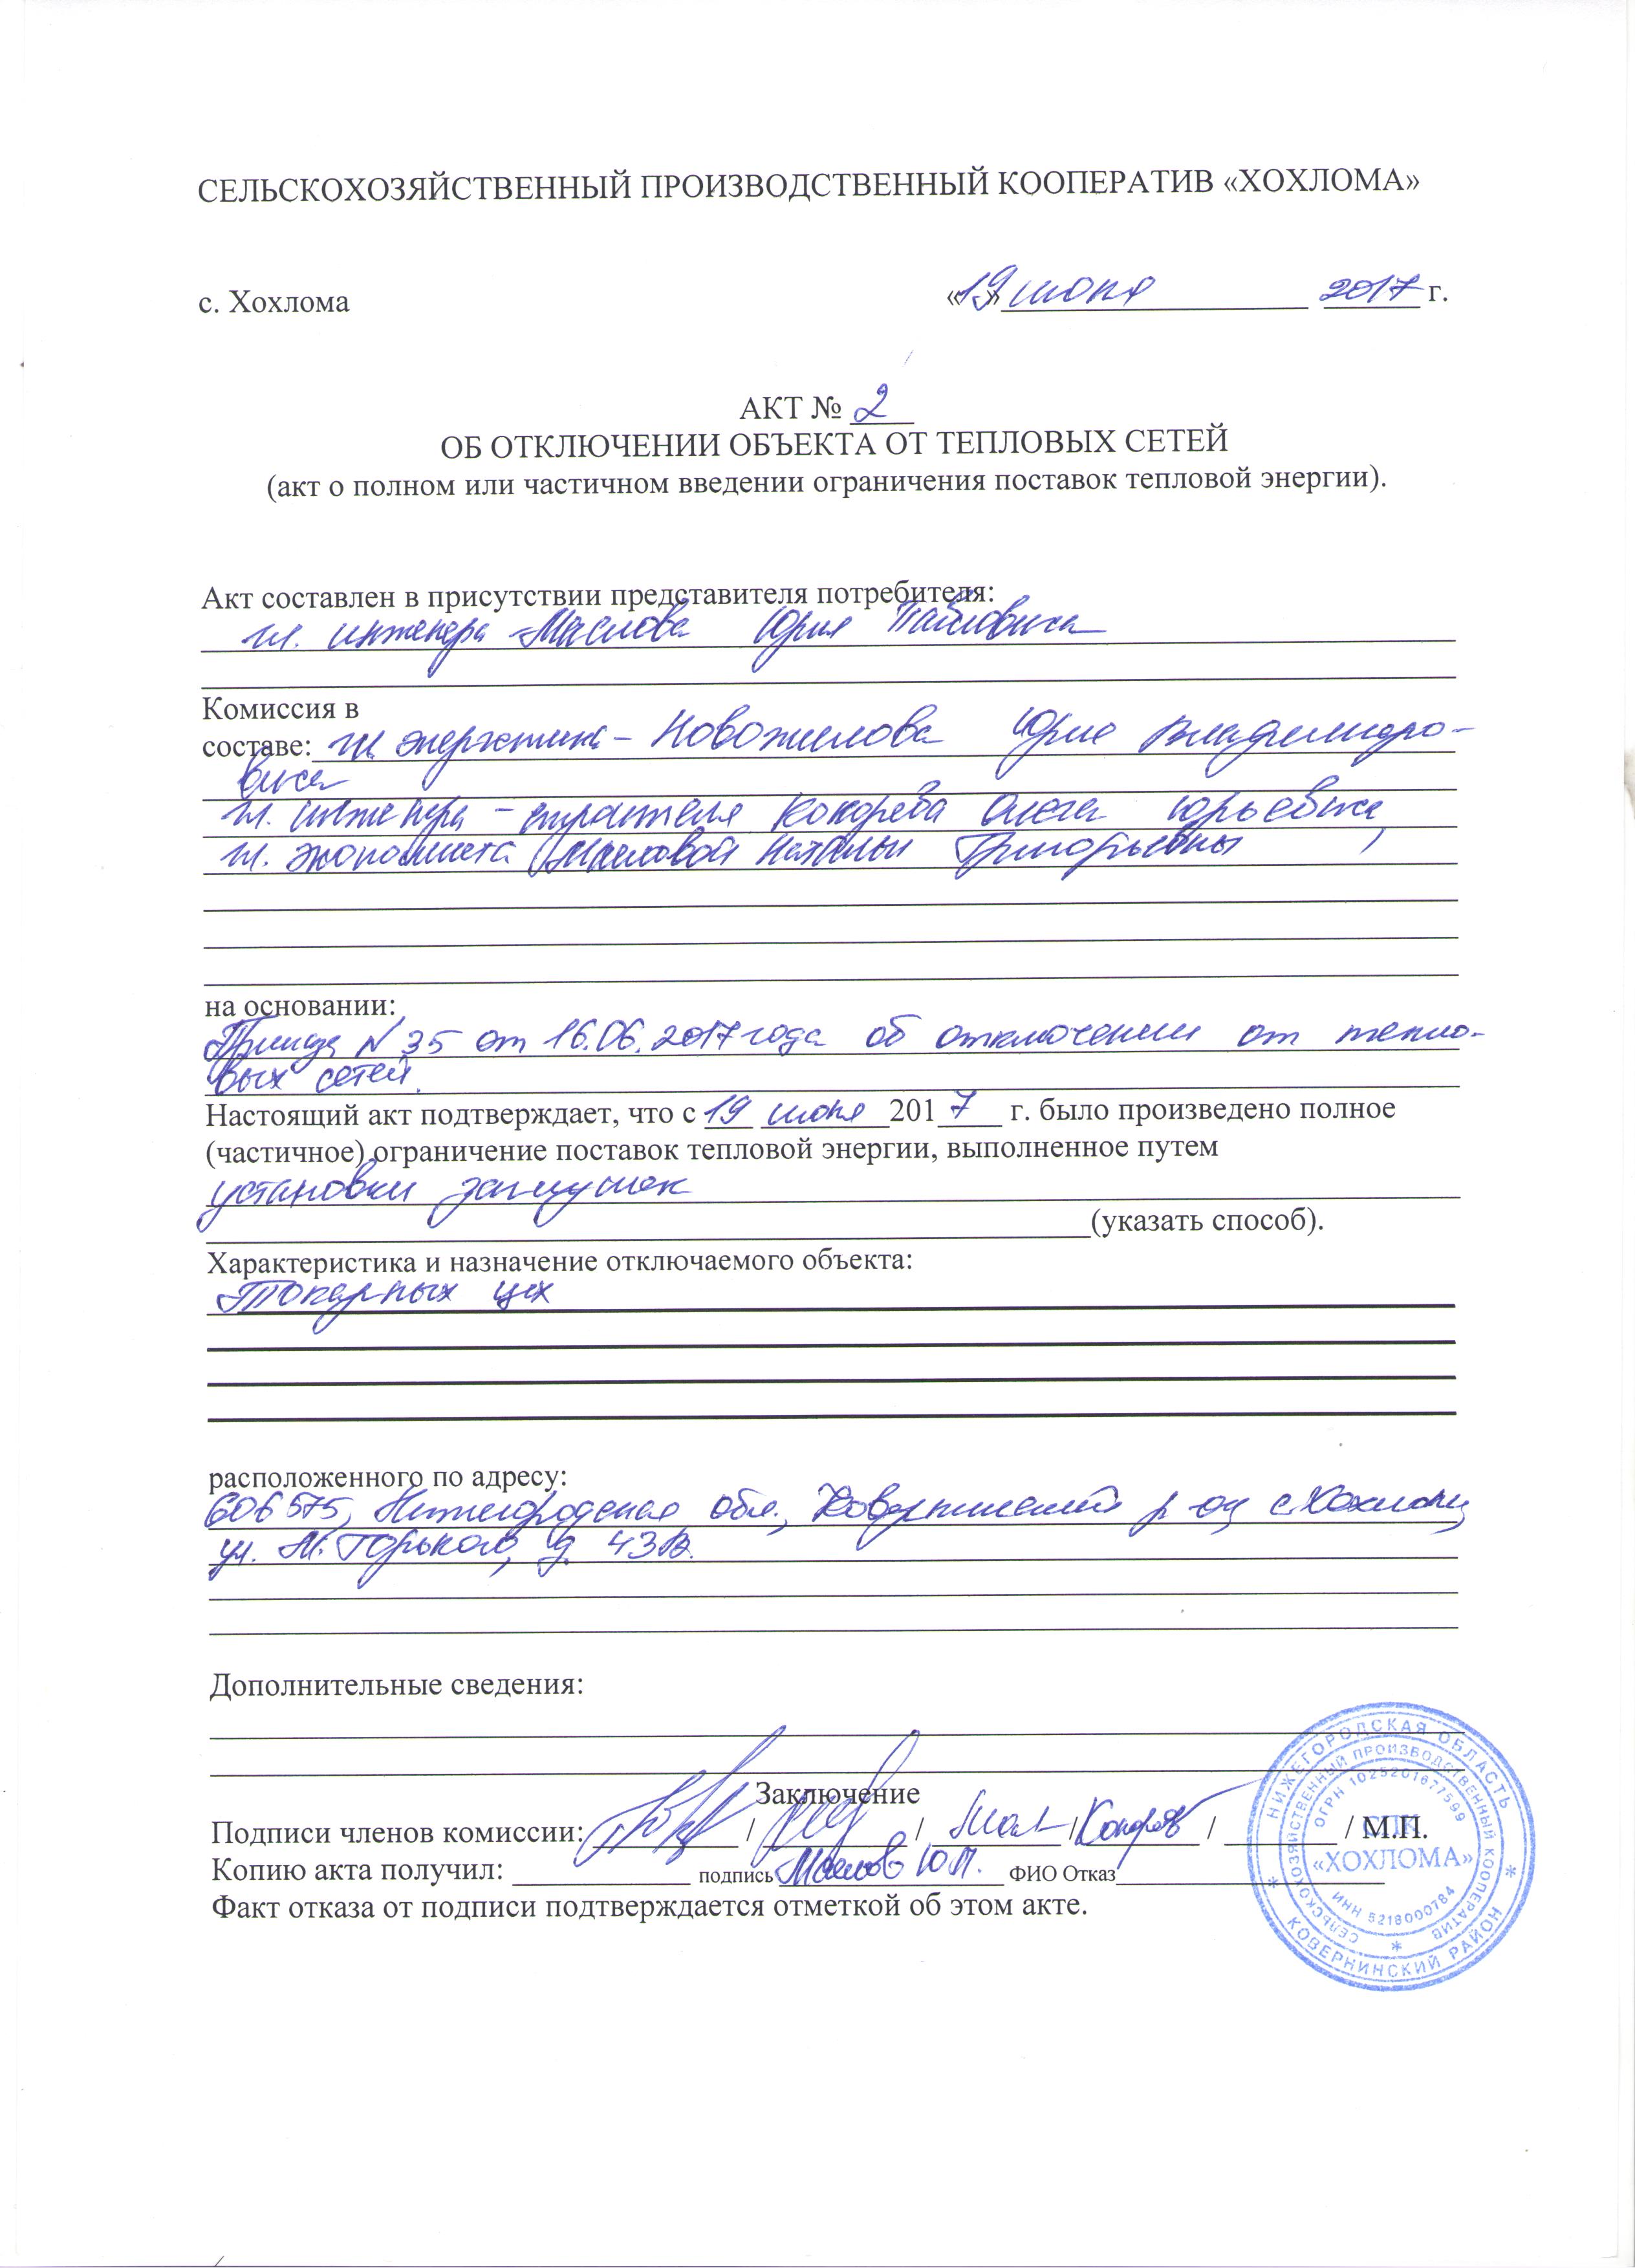 СЕЛЬСКОХОЗЯЙСТВЕННЫЙ ПРОИЗВОДСТВЕННЫЙ КООПЕРАТИВ «ХОХЛОМА»
с. Хохлома «19» июня 2017 г.
АКТ № 2
ОБ ОТКЛЮЧЕНИИ ОБЪЕКТА ОТ ТЕПЛОВЫХ СЕТЕЙ
(акт о полном или частичном введении ограничения поставок тепловой энергии).
Акт составлен в присутствии представителя потребителя:
гл. инженера Маслова Юрия Павловича
Комиссия в
составе: гл. энергетика – Новожилова Юрия Владимиро-
вича
гл. инженера – строителя Кокорева Олега Юрьевича,
гл. экономиста Масловой Натальи Григорьевны
на основании:
Приказа N 35 от 16.06.2017 года об отключении от тепло-
вых сетей.
Настоящий акт подтверждает, что с 19 июня 2017 г. было произведено полное
(частичное) ограничение поставок тепловой энергии, выполненное путем
установки заглушек
(указать способ).
Характеристика и назначение отключаемого объекта:
Токарных цех
расположенного по адресу:
606575, Нижегородская обл., Ковернинский р-он, с. Хохлома,
ул. М. Горького, д. 43В.
Дополнительные сведения:
Заключение
Подписи членов комиссии: / / / / / М.П.
Копию акта получил: подпись Маслов Ю.П. ФИО Отказ
Факт отказа от подписи подтверждается отметкой об этом акте.
НИЖЕГОРОДСКАЯ ОБЛАСТЬ
КОВЕРНИНСКИЙ РАЙОН
СЕЛЬСКОХОЗЯЙСТВЕННЫЙ ПРОИЗВОДСТВЕННЫЙ КООПЕРАТИВ
ОГРН 1025201677599
СПК
«ХОХЛОМА»
ИНН 5218000784